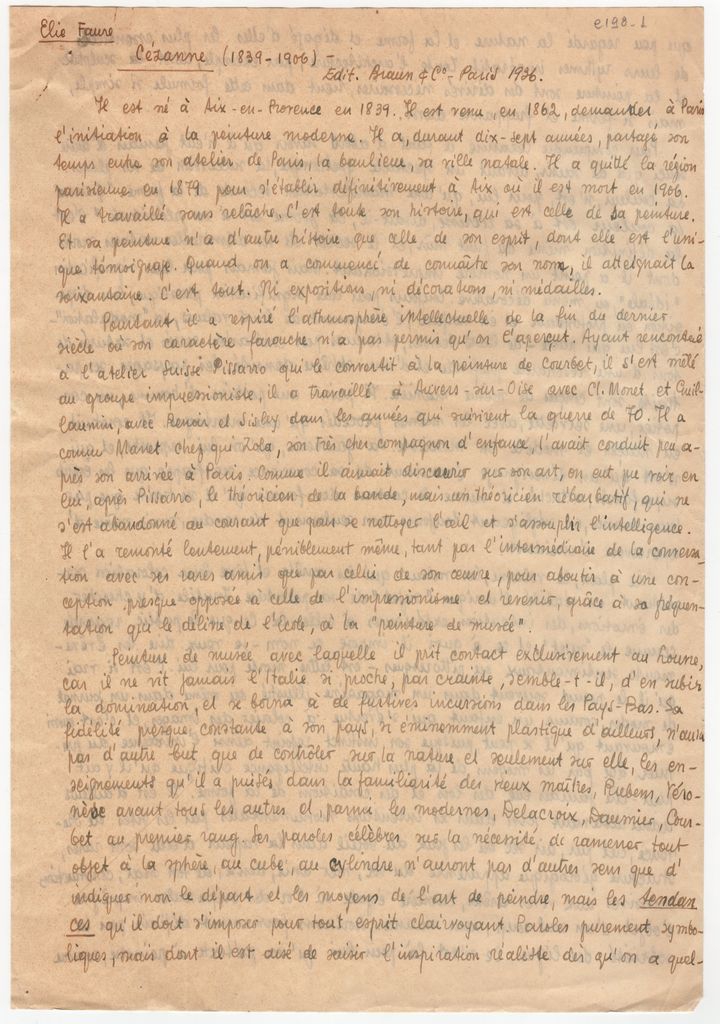 Elie Faure
e198-1
Cézanne (1839-1906) -
Edit. Braun & Cº - Paris 1936.
Il est né à Aix-en-Provence en 1839. Il est venu, en 1862, demander à Paris
l'initiation à la peinture moderne. Il a, durant dix-sept années, partagé son
temps entre son atelier de Paris, la banlieue, sa ville natale. Il a quitté la région
parisienne en 1879 pour s'établir définitivement à Aix où il est mort en 1906.
Il a travaillé sans relâche. C'est toute son histoire, qui est celle de sa peinture.
Et sa peinture n'a d'autre histoire que celle de son esprit, dont elle est l'uni-
que témoignage. Quand on a commencé de connaître son nom, il atteignait la
soixantaine. C'est tout. Ni expositions, ni décorations, ni médailles.
Pourtant, il a respiré l'athmosphère intellectuelle de la fin du dernier
siècle où son caractère farouche n'a pas permis qu'on l'aperçut. Ayant rencontré
à l'atelier Suisse Pissarro qui le convertit à la peinture de Courbet, il s'est mêlé
au groupe impressioniste, il a travaillé à Auvers-sur-Oise avec Cl. Monet et Guil-
laumin, avec Renoir et Sisley dans les années qui suivirent la guerre de 70. Il a
connu Manet chez qui Zola, son très cher compagnon d'enfance, l'avait conduit peu a-
près son arrivée à Paris. Comme il aimait discourir sur son art, on eut pu voir en
lui, après Pissarro, le théoricien de la bande, mais un théoricien rébarbatif, qui ne
s'est abandonné au courant que pour se nettoyer l'œil et s'assouplir l'intelligence.
Il l'a remonté lentement, péniblement même, tant par l'intermédiaire de la conversa-
tion avec ses rares amis que par celui de son œuvre, pour aboutir à une con-
ception presque opposée à celle de l'impressionisme et revenir, grâce à sa fréquen-
tation qui le délivre de l'école, à la "peinture de musée".
Peinture de musée avec laquelle il prit contact exclusivement au Louvre,
car il ne vit jamais l'Italie si proche, par crainte, semble-t-il, d'en subir
la domination, et se borna à de furtives incursions dans les Pays-Bas. Sa
fidélité presque constante à son pays, si éminemment plastique d'ailleurs, n'aura
pas d'autre but que de contrôler sur la nature et seulement sur elle, les en-
seignements qu'il a puisés dans la familiarité des vieux maîtres, Rubens, Véro-
nèse avant tous les autres et, parmi les modernes, Delacroix, Daumier, Cour-
bet au premier rang. Ses paroles célèbres sur la nécessité de ramener tout
objet à la sphère, au cube, au cylindre, n'auront pas d'autres sens que d'
indiquer non le départ et les moyens de l'art de peindre, mais les tendan
ces qu'il doit s'imposer pour tout esprit clairvoyant. Paroles purement symbo-
liques, mais dont il est aisé de saisir l'inspiration réaliste dès qu'on a quel-